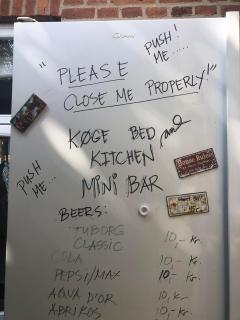 PUSH!
ME.....
"PLEASE
CLOSE ME PROPERLY!"
KØGE BED and
KITCHEN
MINI BAR
PUSH
ME...
BEERS:
TUBORG
CLASSIC 10,- Kr.
COLA 10,- Kr.
PEPSI/MAX 10,- Kr.
AQUA D'OR 10,- Kr.
ABRIKOS 10,- Kr.
House Rules